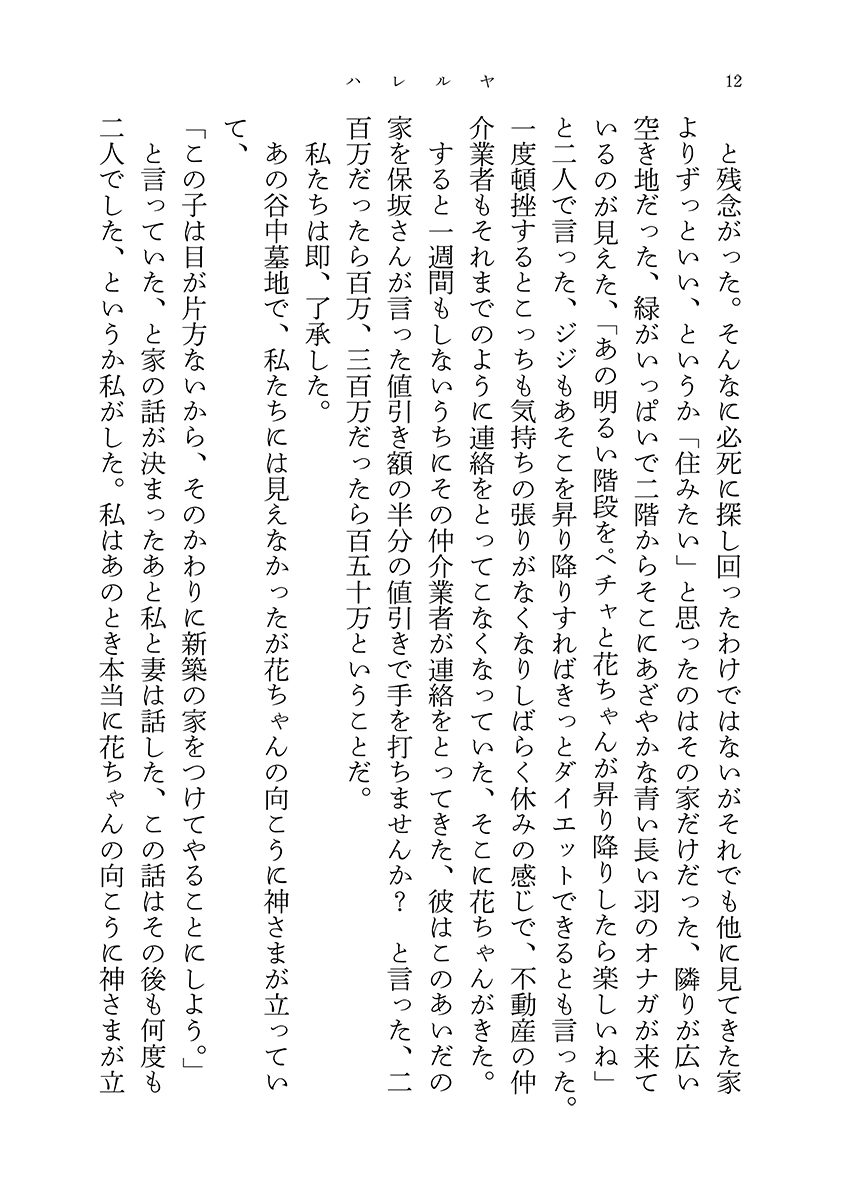 ハレルヤ
12
と残念がった。そんなに必死に探し回ったわけではないがそれでも他に見てきた家
よりずっといい、というか「住みたい」と思ったのはその家だけだった、隣りが広い
空き地だった、緑がいっぱいで二階からそこにあざやかな青い長い羽のオナガが来て
いるのが見えた、「あの明るい階段をペチャと花ちゃんが昇り降りしたら楽しいね」
と二人で言った、ジジもあそこを昇り降りすればきっとダイエットできるとも言った。
一度頓挫するとこっちも気持ちの張りがなくなりしばらく休みの感じで、不動産の仲
介業者もそれまでのように連絡をとってこなくなっていた、そこに花ちゃんがきた。
すると一週間もしないうちにその仲介業者が連絡をとってきた、彼はこのあいだの
家を保坂さんが言った値引き額の半分の値引きで手を打ちませんか？　と言った、二
百万だったら百万、三百万だったら百五十万ということだ。
私たちは即、了承した。
あの谷中墓地で、私たちには見えなかったが花ちゃんの向こうに神さまが立ってい
て、
「この子は目が片方ないから、そのかわりに新築の家をつけてやることにしよう。」
と言っていた、と家の話が決まったあと私と妻は話した、この話はその後も何度も
二人でした、というか私がした。私はあのとき本当に花ちゃんの向こうに神さまが立